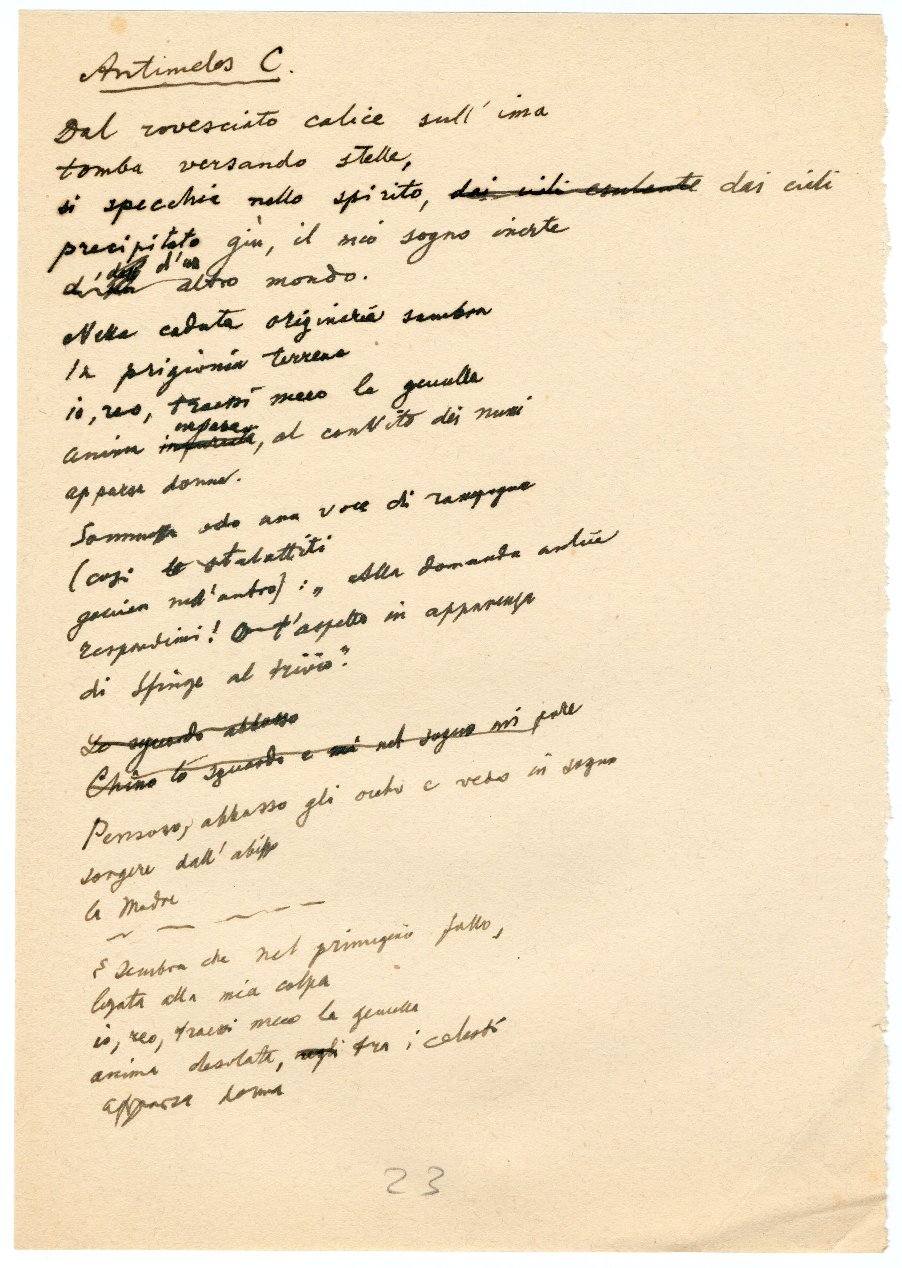 Antimelos C.
Dal rovesciato calice sull'ima
tomba versando stelle,
si specchia nello spirito, dai cieli esulante dai cieli
precipitato giù, il mio sogno inerte
d'un
altro mondo.
Nella caduta originaria sembra
In prigionia terrena
io, reo, trassi meco la gemella
impura
anima, al convito dei numi
apparsa donna.
Sommessa odo una voce di rampogna
(così le stalattiti
gemica nell'antro): „Alla domanda antica
respondimi! O t'aspetto in apparenza
di Sfinge al trivio".
Lo sguardo abbasso
Chino lo sguardo e nel sogno mi pare
Pensoso, abbasso gli occhi e vedo in sogno
sorgere dall'abisso
la Madre
E sembra che nel primigenio fallo,
legata alla mia colpa
io, reo, trassi meco la gemella
anima desolata, negli tra i celesti
apparsa donna
23